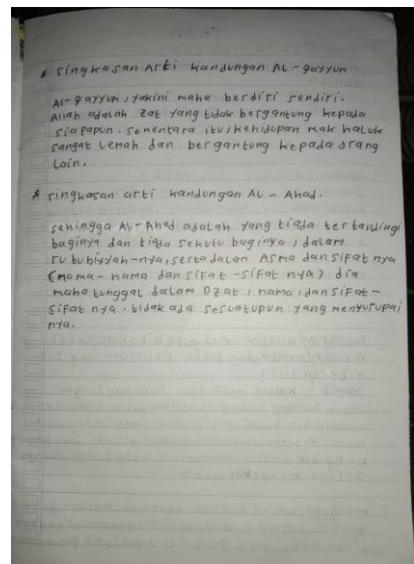 * ringkasan Arti kandungan AL-qayyum
AL-qayyum, yakini maha berdiri sendiri.
Allah adalah zat yang tidak bergantung kepada
siapapun. sementara itu, kehidupan mak haluk
sangat lemah dan bergantung kepada orang
lain.
* ringkasan arti kandungan AL-Ahad.
sehingga AL-Ahad adalah yang tiada tertandingi
baginya dan tiada sekutu baginya, dalam
rububiyyah-nya, serta dalan Asma dan sifat nya
(nama-nama dan sifat-sifat nya) dia
maha tunggal dalam Dzat, nama, dan sifat-
sifat nya. tidak ada sesuatupun yang menyurupai
nya.